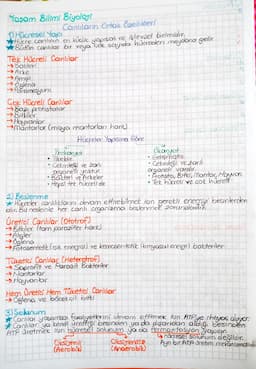 Yaşam Bilimi Biyoloji
Canlıların Ortak Özellikleri
1) Hücresel Yapı
Hücre canlıların en küçük yapısal ve işlevsel birimidir.
Bütün canlılar bir veya çok sayıda hücreden meydana gelir.
Tek Hücreli Canlılar
→ Bakteri
→ Arke
→ Amip
→ Öglena
→ Paramesyum
Çok Hücreli Canlılar
→ Bazı protistalar
→ Bitkiler
→ Hayvanlar
→ Mantarlar (maya mantarları hariç)
Hücreler Yapısına Göre
Prokaryot
Ökaryot
• İlkeldir
• Gelişmiştir
• Çekirdeği ve zarlı organeli yoktur
• Çekirdeği ve zarlı organeli vardır
• Bakteri ve Arkeler
• Protista, Bitki, Mantar, Hayvan
• Hepsi tek hücreli
• Tek hücreli ve çok hücreli
2) Beslenme
Hücreler canlılıklarını devam ettirebilmek için gerekli enerjiyi besinlerden
alır. Bu nedenle her canlı organizma beslenmek zorundadır.
Üretici Canlılar (Ototrof)
→ Bitkiler (tam parazitler hariç)
→ Algler
→ Öglena
→ Fotosentetik (ışık enerjisi) ve kemosentetik (kimyasal enerji) bakteriler
Tüketici Canlılar (Heterotrof)
→ Saprofit ve Parazit Bakteriler
→ Mantarlar
→ Hayvanlar
Hem Üretici Hem Tüketici Canlılar
→ Öglena ve böcekçil bitki
3) Solunum
Canlılar yaşamsal faaliyetlerini devam ettirmek için ATP'ye ihtiyaç duyar.
Canlılar ya kendi ürettiği besinden ya da dışarıdan aldığı besinden
ATP üretmek için hücresel solunum ya da fermantasyon yaparlar.
Oksijenli (Aerobik)
Oksijensiz (Anaerobik)
ATP üretim mekanizmasıdır